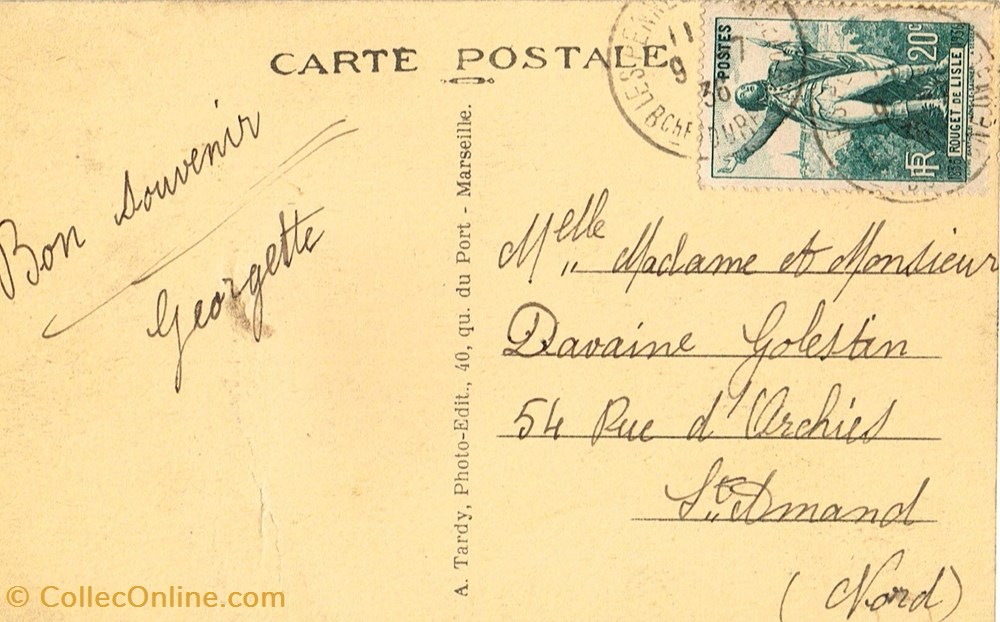 CARTE POSTALE
Bon Souvenir
Georgette
A. Tardy, Photo-Edit., 40, qu. du Port - Marseille.
POSTES
20c
ROUGET DE LISLE
RF
LES PENNES
11
9
36
Melle Madame et Monsieur
Davaine Golestin
54 Rue d'Orchies
St Amand
(Nord)
© CollecOnline.com